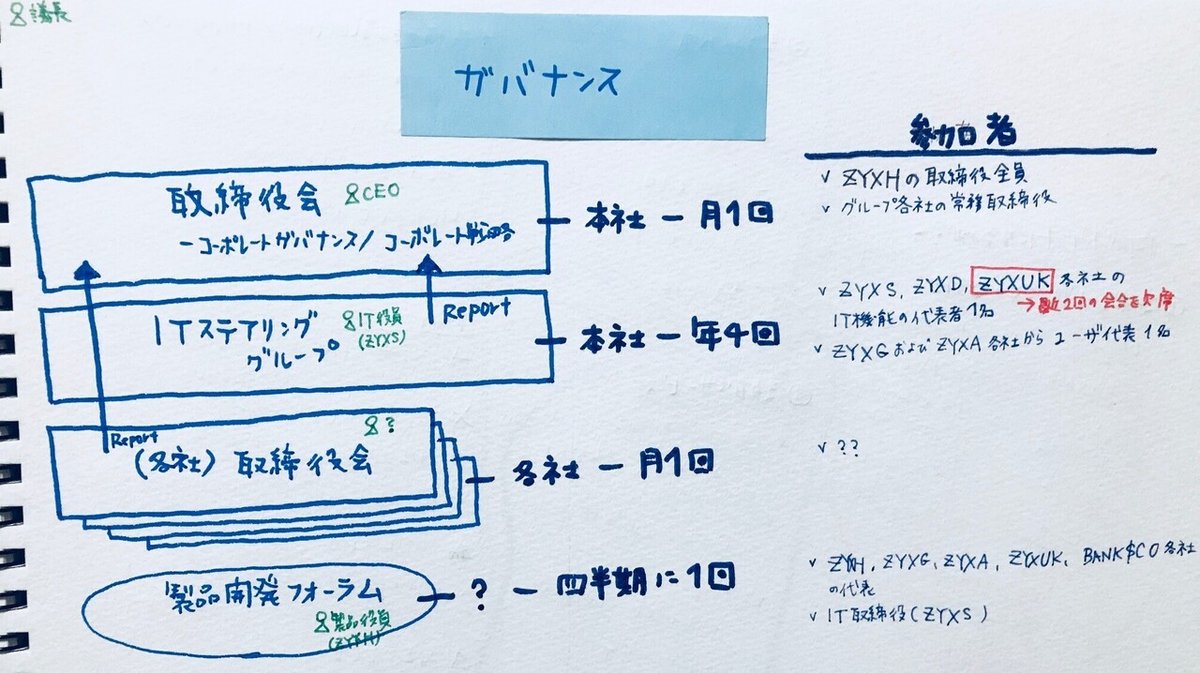 議長
ガバナンス
参加者
取締役会 CEO
ーコーポレートガバナンス/コーポレート戦略
本社 ー 月1回
✓ ZYXHの取締役全員
✓ グループ各社の常務取締役
Report
ITステアリング
グループ
IT役員
(ZYXS)
本社 ー 年4回
✓ ZYXS, ZYXD, ZYXUK 各社の
IT機能の代表者1名
→最近2回の会合を欠席
✓ ZYXGおよびZYXA各社からユーザ代表1名
Report
?
(各社)取締役会
各社 ー 月1回
✓ ??
製品開発フォーラム
製品役員
(ZYXH)
? ー 四半期に1回
✓ ZYXH, ZYXG, ZYXA, ZYXUK, BANK$CO各社
の代表
✓ IT取締役(ZYXS)